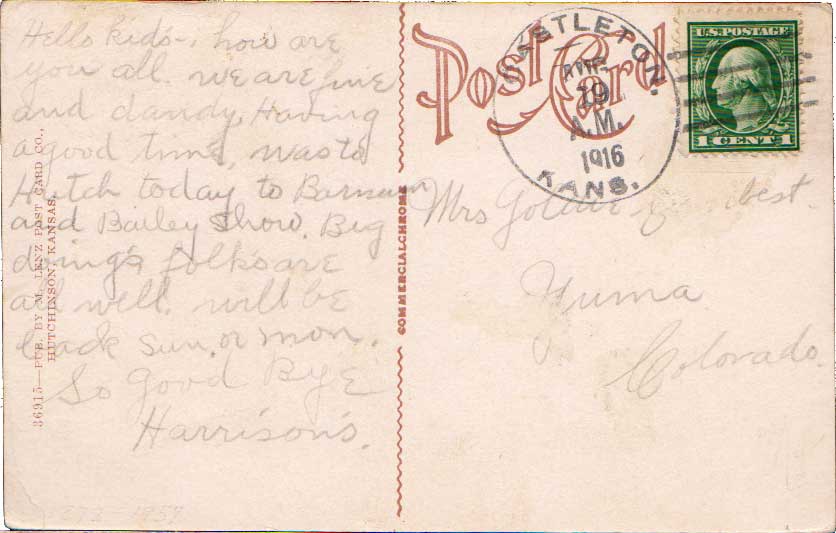 Hello kids-, how are
you all. we are fine
and dandy, Having
a good time, was to
Hutch today to Barnum
and Bailey Show. Big
doing's folks are
all well. will be
back sun. or mon.
So Good Bye
Harrison's.
36915—PUB. BY M. LENZ POST CARD CO.,
HUTCHINSON, KANSAS.
COMMERCIALCHROME
Post Card
CASTLETON,
19
A.M.
1916
KANS.
U.S. POSTAGE
1 CENT 1
Mrs
Yuma
Colorado.